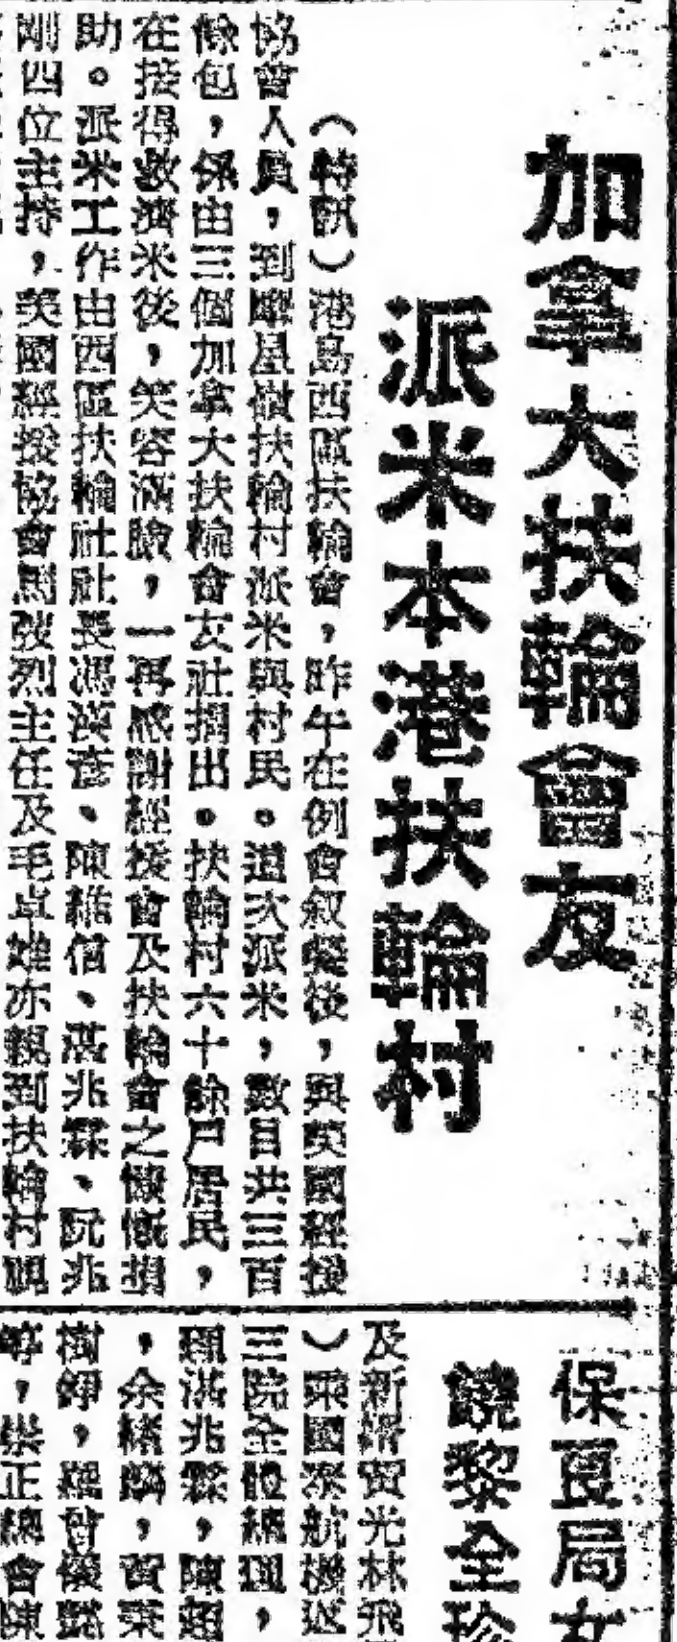 加拿大扶輪會友
派米本港扶輪村
（特訊）港島西區扶輪會，昨午在例會叙餐後，與英國經援
協會人員，到摩星嶺扶輪村派米與村民。這次派米，數目共三百
餘包，係由三個加拿大扶輪會友社捐出。扶輪村六十餘戶居民，
在接得救濟米後，笑容滿臉，一再感謝經援會及扶輪會之慷慨捐
助。派米工作由西區扶輪社社長馮漢彥、陳維信、湛兆霖、阮兆
剛四位主持，英國經援協會馬弢烈主任及毛卓雄亦親到扶輪村視
保良局女
饒黎全珍
及新
）乘國泰航機返
三院全體總理，
湛兆霖，陳超
，余
樹錚，
等，崇正總會陳